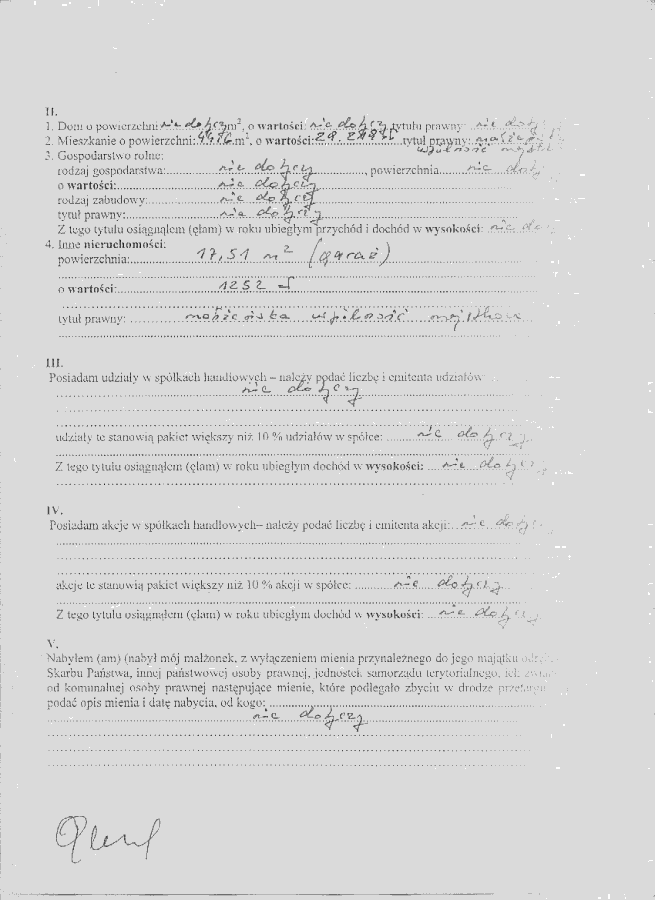 II.
1. Dom o powierzchni: nie dotyczy m², o wartości: nie dotyczy tytuł prawny: nie doty
2. Mieszkanie o powierzchni: m², o wartości: tytuł prawny:
wspólność
3. Gospodarstwo rolne:
rodzaj gospodarstwa: nie dotyczy, powierzchnia nie doty
o wartości: nie dotyczy
rodzaj zabudowy: nie dotyczy
tytuł prawny: nie dotyczy
Z tego tytułu osiągnąłem (ęłam) w roku ubiegłym przychód i dochód w wysokości: nie do
4. Inne nieruchomości:
powierzchnia: 17,51 m² (garaż)
o wartości: 1252 zł
tytuł prawny: małżeńska wspólność majątkowa
III.
Posiadam udziały w spółkach handlowych – należy podać liczbę i emitenta udziałów
nie dotyczy
udziały te stanowią pakiet większy niż 10 % udziałów w spółce: nie dotyczy
Z tego tytułu osiągnąłem (ęłam) w roku ubiegłym dochód w wysokości: nie dotyczy
IV.
Posiadam akcje w spółkach handlowych– należy podać liczbę i emitenta akcji: nie dotyc
akcje te stanowią pakiet większy niż 10 % akcji w spółce: nie dotyczy
Z tego tytułu osiągnąłem (ęłam) w roku ubiegłym dochód w wysokości: nie dotyczy
V.
Nabyłem (am) (nabył mój małżonek, z wyłączeniem mienia przynależnego do jego majątku
Skarbu Państwa, innej państwowej osoby prawnej, jednostek samorządu terytorialnego, ich
od komunalnej osoby prawnej następujące mienie, które podlegało zbyciu w drodze przetargu
podać opis mienia i datę nabycia, od kogo:
nie dotyczy